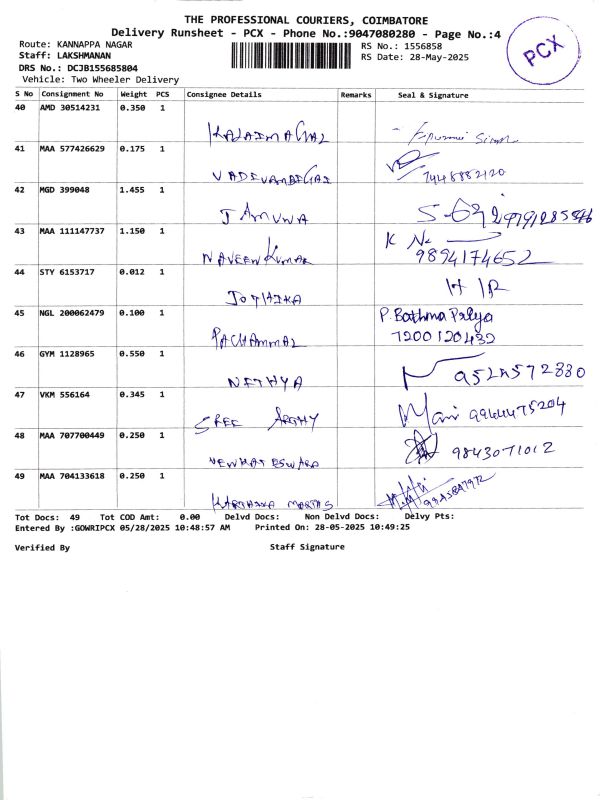 THE PROFESSIONAL COURIERS, COIMBATORE
Delivery Runsheet - PCX - Phone No.:9047080280 - Page No.:4
Route: KANNAPPA NAGAR
RS No.: 1556858
Staff: LAKSHMANAN
RS Date: 28-May-2025
DRS No.: DCJB155685804
Vehicle: Two Wheeler Delivery
PCX
S No Consignment No Weight PCS Consignee Details Remarks Seal & Signature
40 AMD 30514231 0.350 1
KALAIMAGAL
41 MAA 577426629 0.175 1
VADIVAMBIGAI 7448882120
42 MGD 399048 1.455 1
JAMUNA
43 MAA 111147737 1.150 1
NAVEEN KUMAR 9894174652
44 STY 6153717 0.012 1
JOTHIKA
45 NGL 200062479 0.100 1
PACHAMMAL P. Bathma Priya
7200120432
46 GYM 1128965 0.550 1
NITHYA
47 VKM 556164 0.345 1
SREE Mani
48 MAA 707700449 0.250 1
9843071012
49 MAA 704133618 0.250 1
Tot Docs: 49 Tot COD Amt: 0.00 Delvd Docs: Non Delvd Docs: Delvy Pts:
Entered By :GOWRIPCX 05/28/2025 10:48:57 AM Printed On: 28-05-2025 10:49:25
Verified By Staff Signature